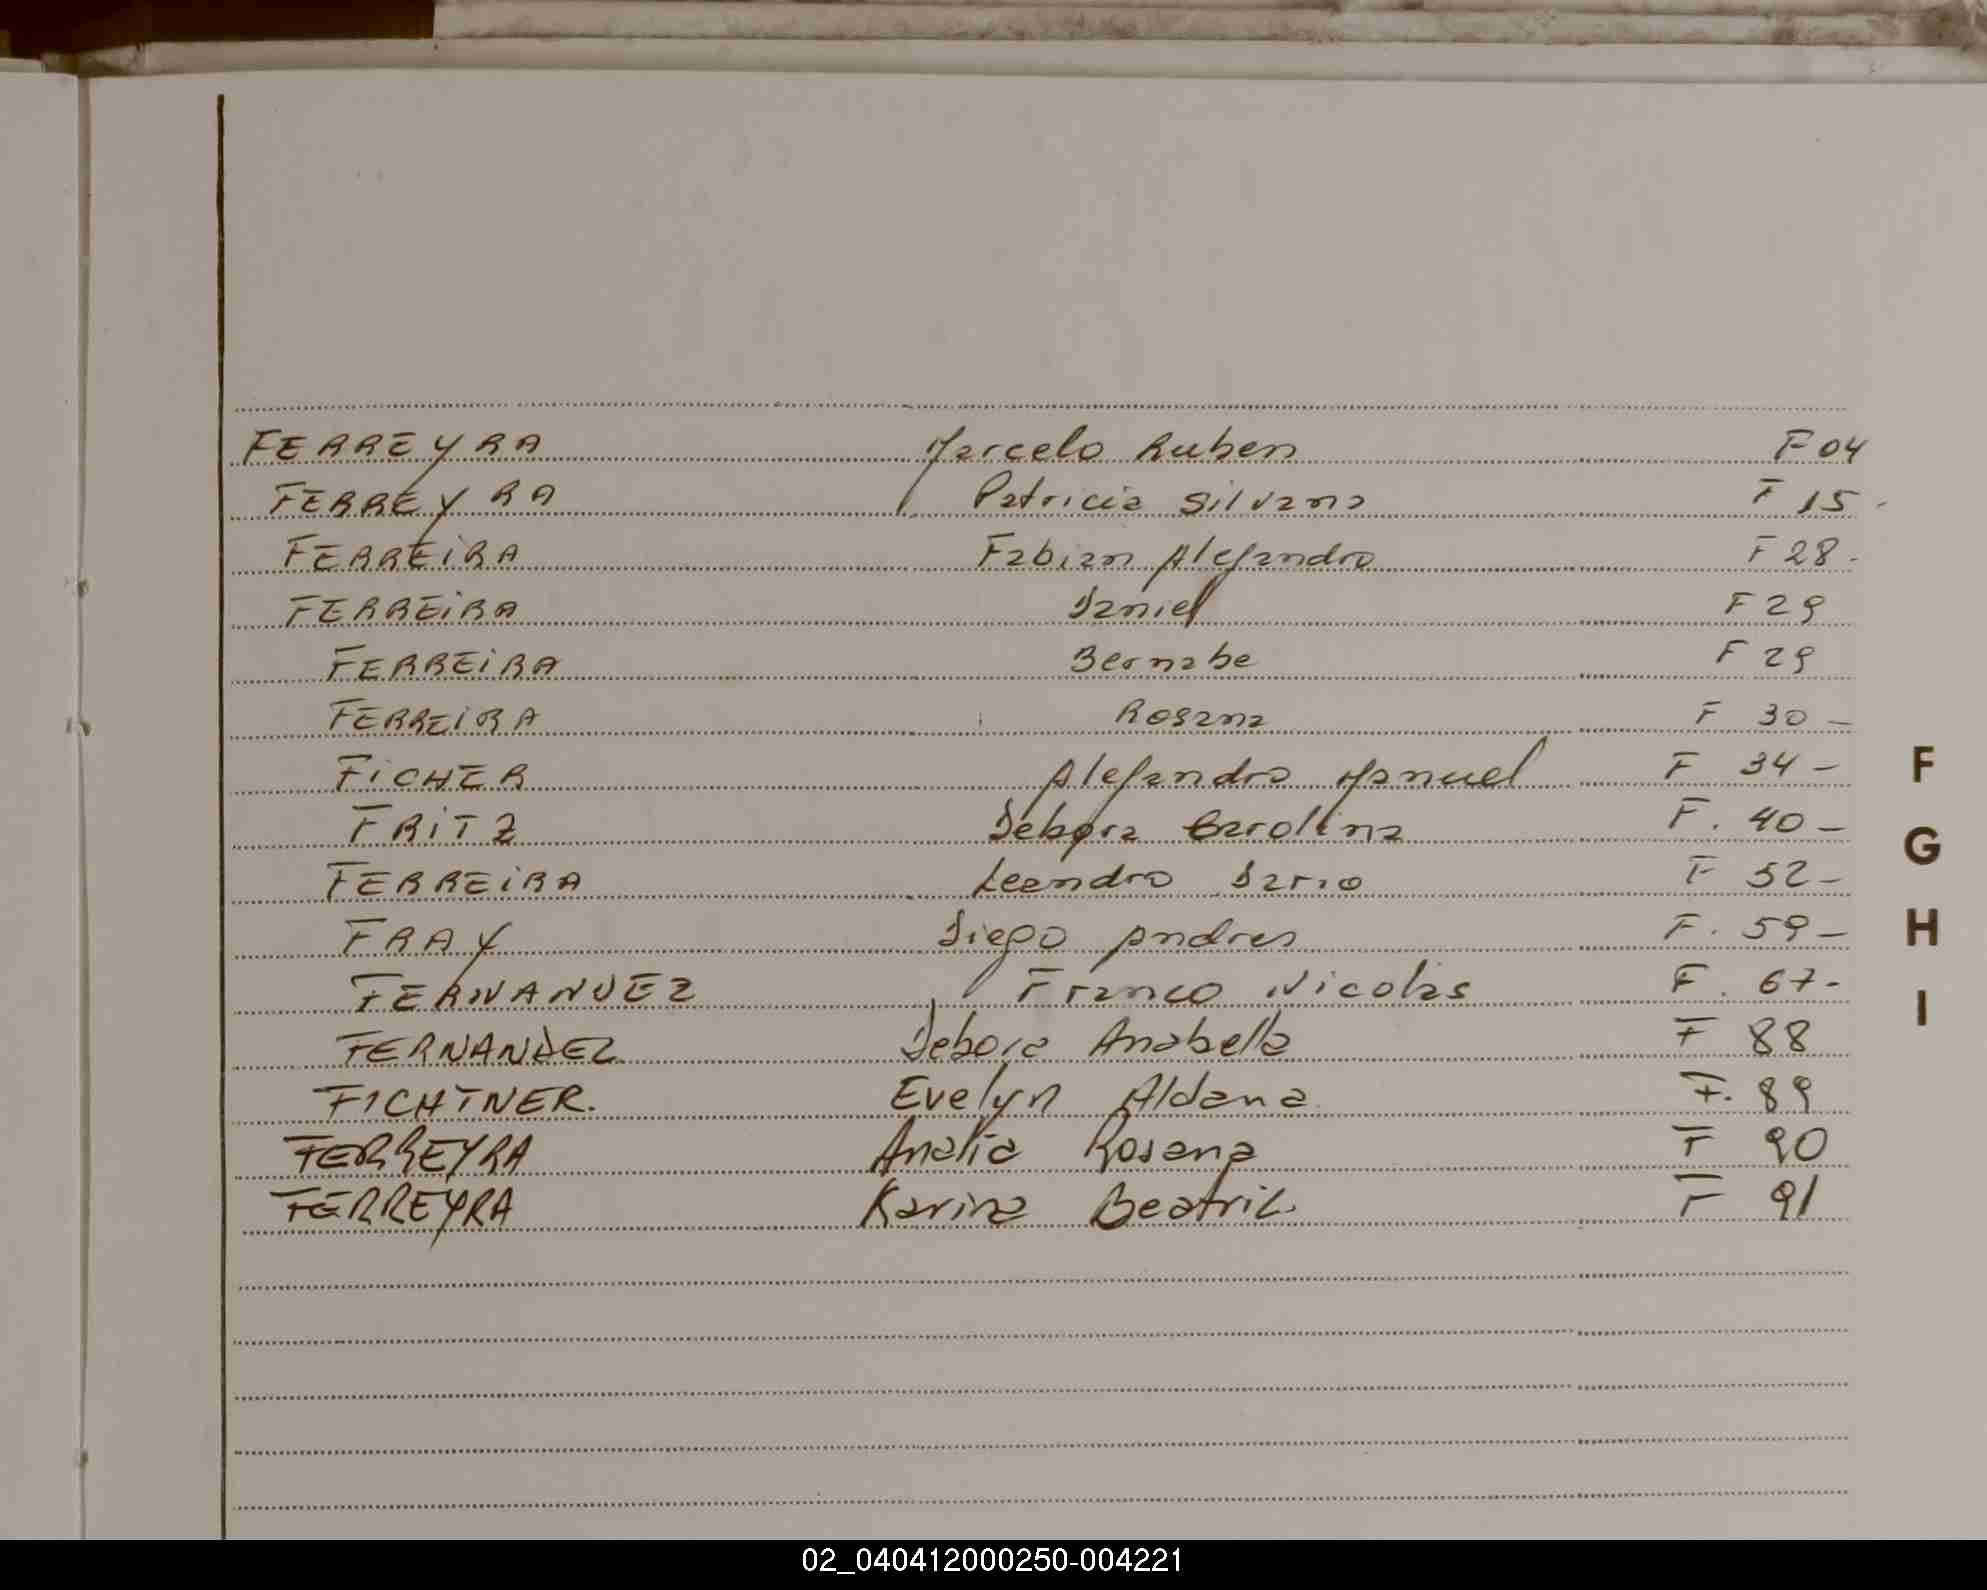 FERREYRA Marcelo Ruben F 04
FERREYRA Patricia Silvana F 15 -
FERREiRA Fabian Alejandro F 28 -
FERREiRA Daniel F 29
FERREiRA Bernabe F 29
FERREiRA Rosana F 30 -
FiCHER Alejandro Manuel F 34 -
FRiTZ Debora Carolina F. 40 -
FERREiRA Leandro Dario F 52 -
FRAY Diego Andres F. 59 -
FERNANDEZ Franco Nicolas F. 67 -
FERNANDEZ Debora Anabella F 88
FICHTNER. Evelyn Aldana F. 89
FERREYRA Analia Rosana F 90
FERREYRA Karina Beatriz F 91
F
G
H
I
02_040412000250-004221